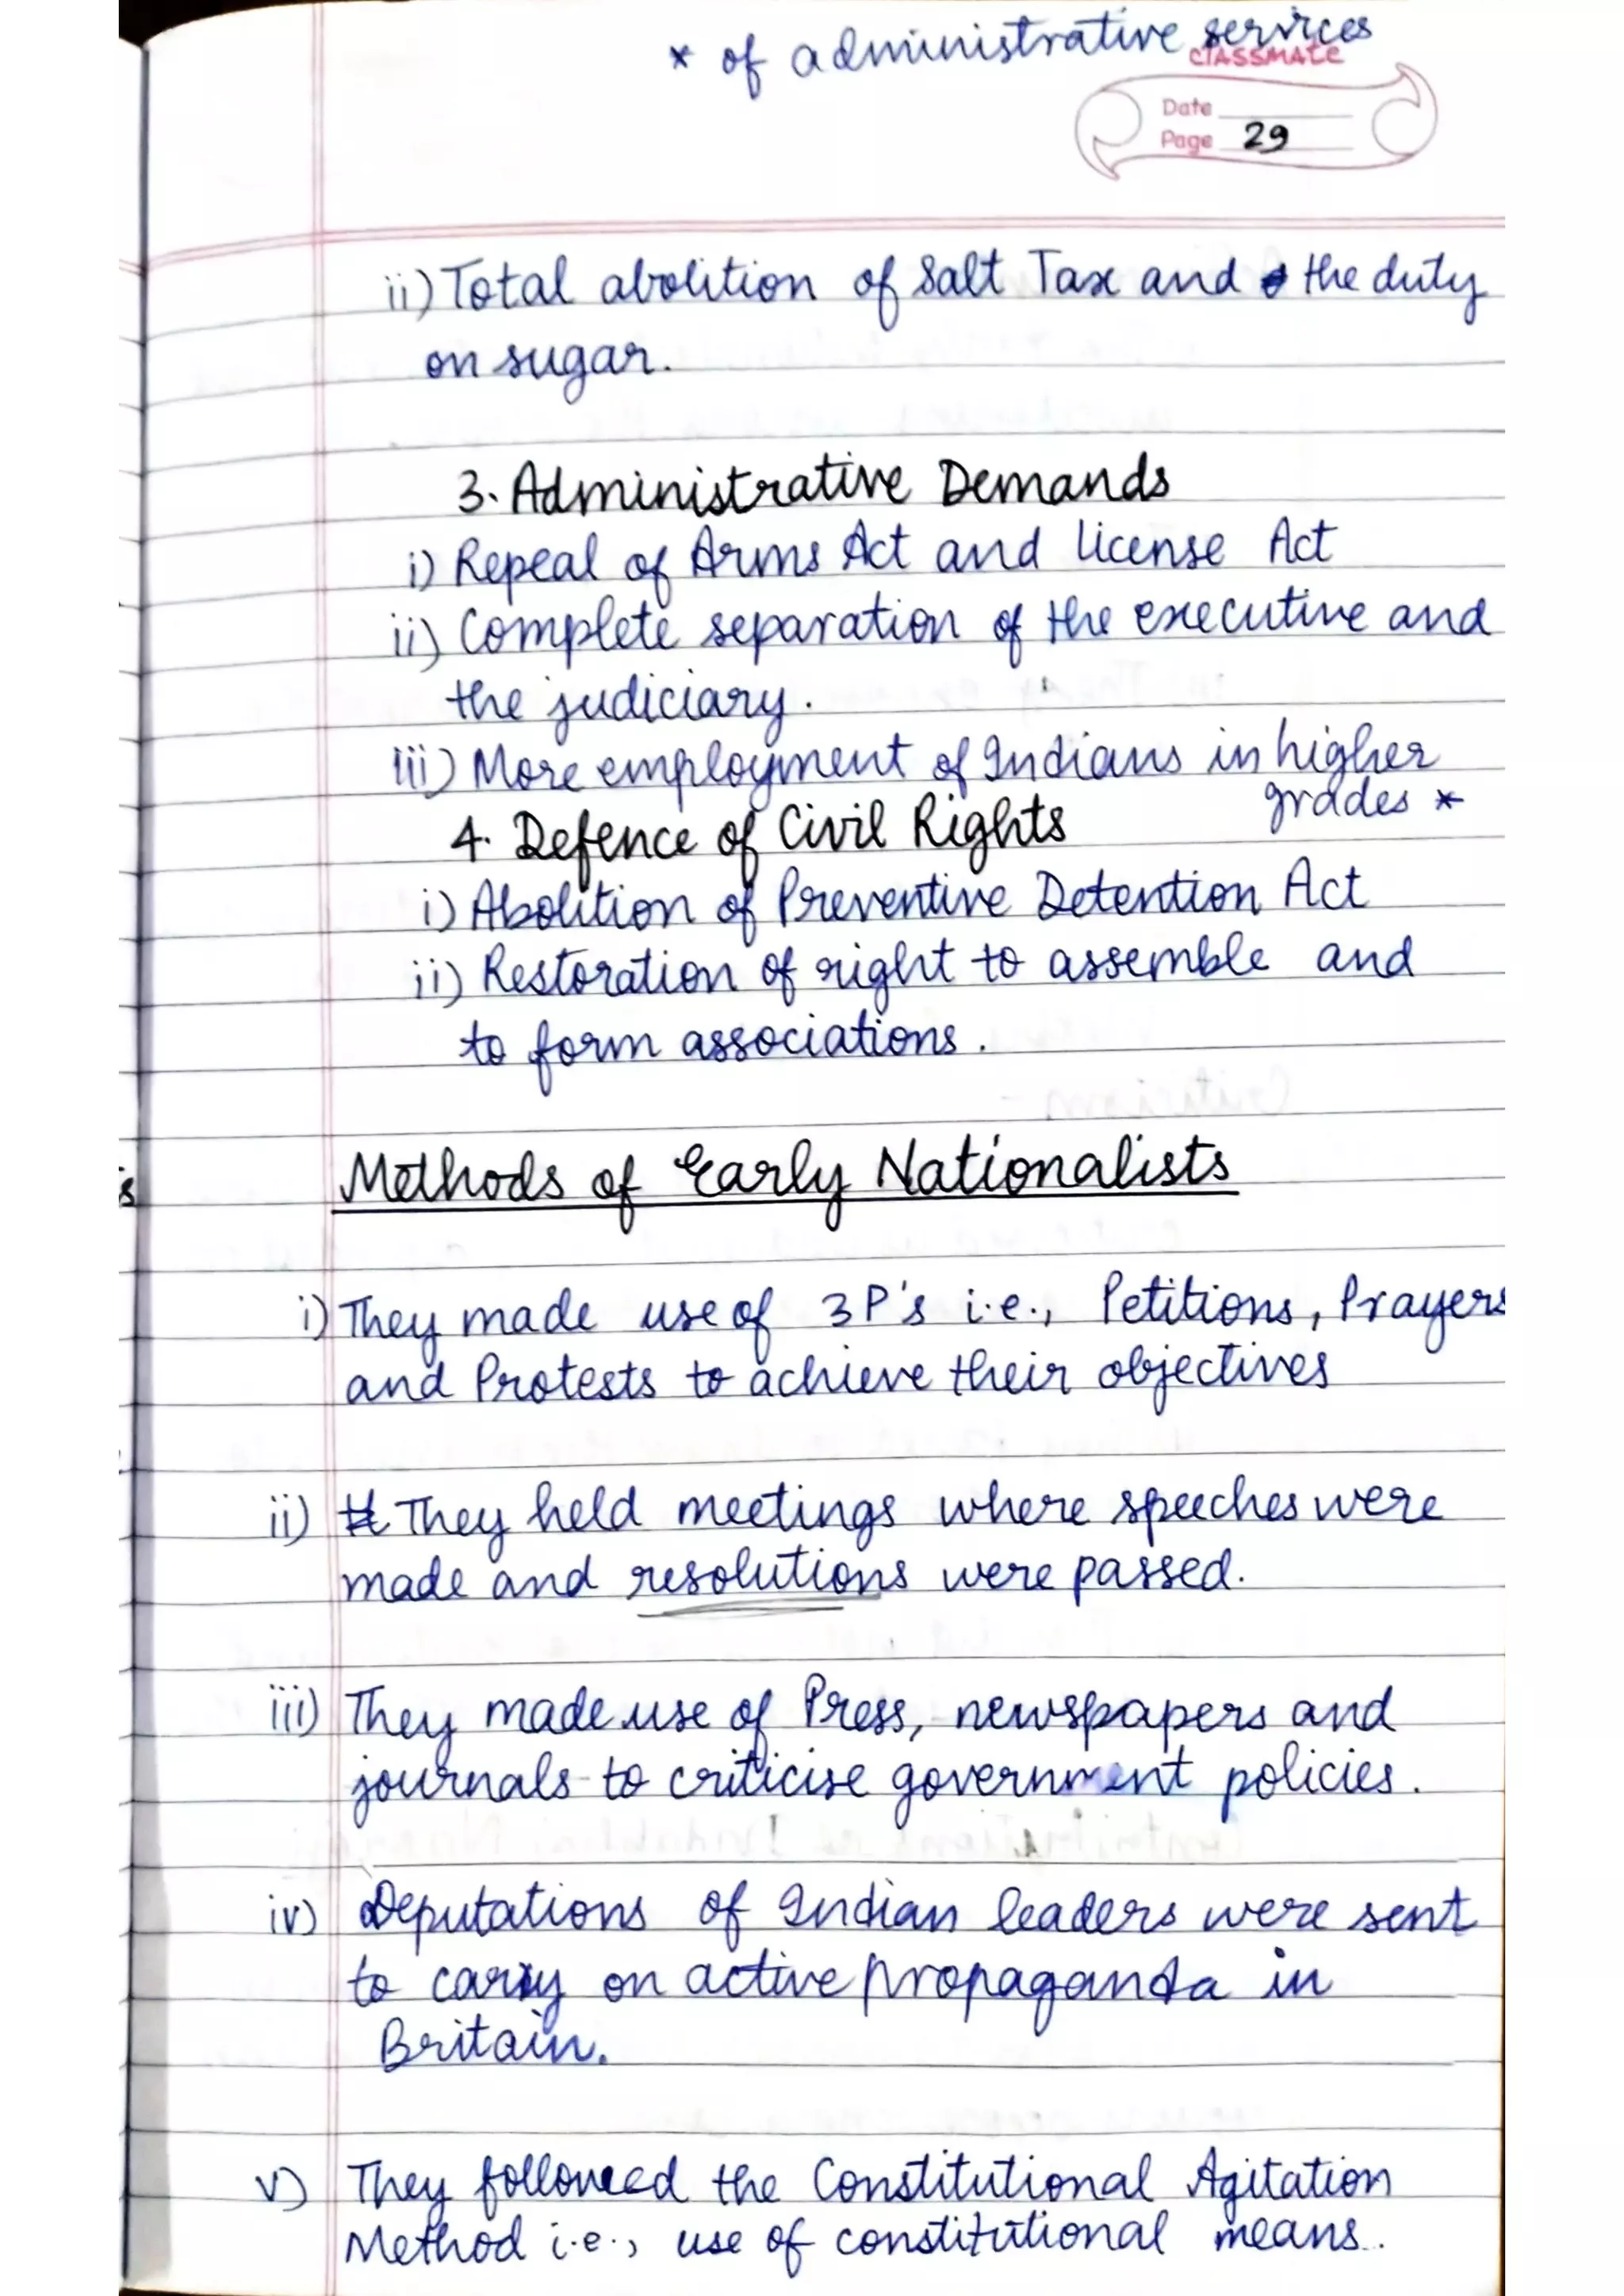 * of administrative services
classmate
Date
Page 29
ii) Total abolition of Salt Tax and the duty
on sugar.
3. Administrative Demands
i) Repeal of Arms Act and License Act
ii) Complete separation of the executive and
the judiciary.
iii) More employment of Indians in higher
grades *
4. Defence of Civil Rights
i) Abolition of Preventive Detention Act
ii) Restoration of right to assemble and
to form associations.
Methods of Early Nationalists
i) They made use of 3P's i.e., Petitions, Prayers
and Protests to achieve their objectives
ii) They held meetings where speeches were
made and resolutions were passed.
iii) They made use of Press, newspapers and
journals to criticise government policies.
iv) Deputations of Indian leaders were sent
to carry on active propaganda in
Britain.
v) They followed the Constitutional Agitation
Method i.e., use of constitutional means.